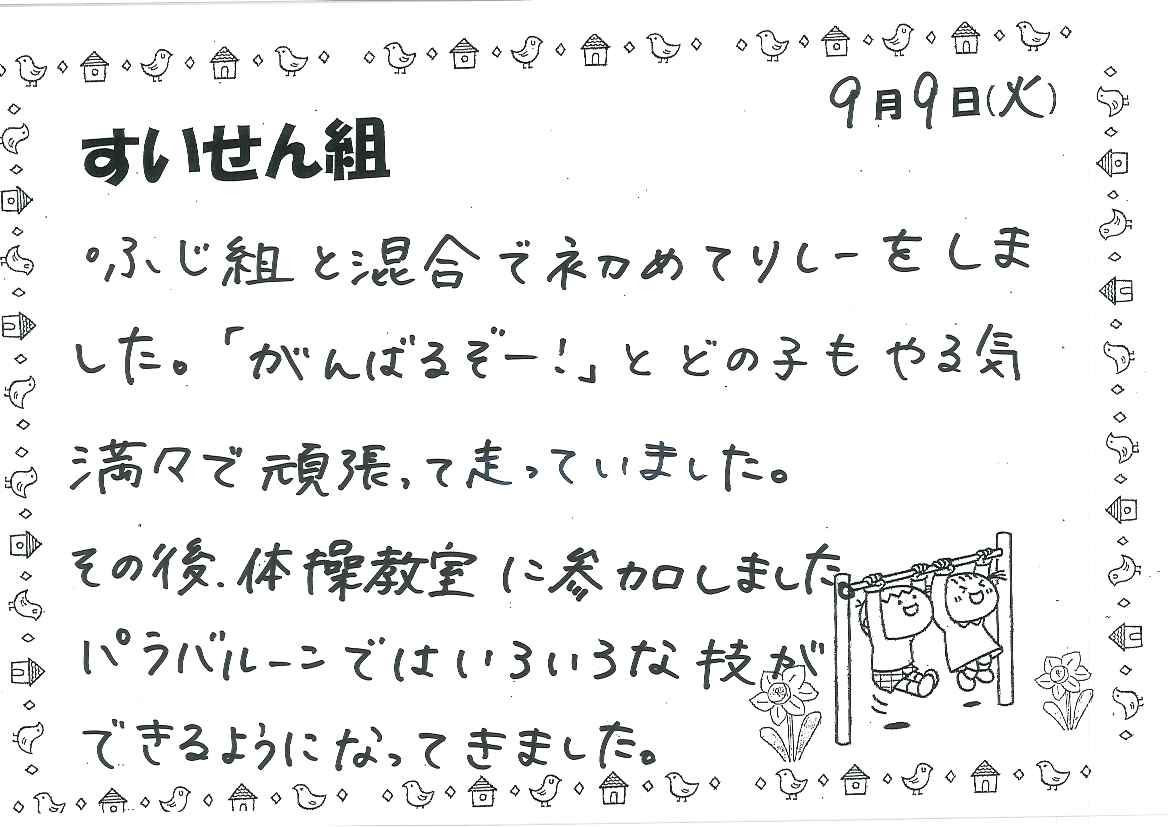 9月9日(火)
すいせん組
。ふじ組と混合で初めてリレーをしま
した。「がんばるぞー!」とどの子もやる気
満々で頑張って走っていました。
その後、体操教室に参加しました。
パラバルーンではいろいろな技が
できるようになってきました。